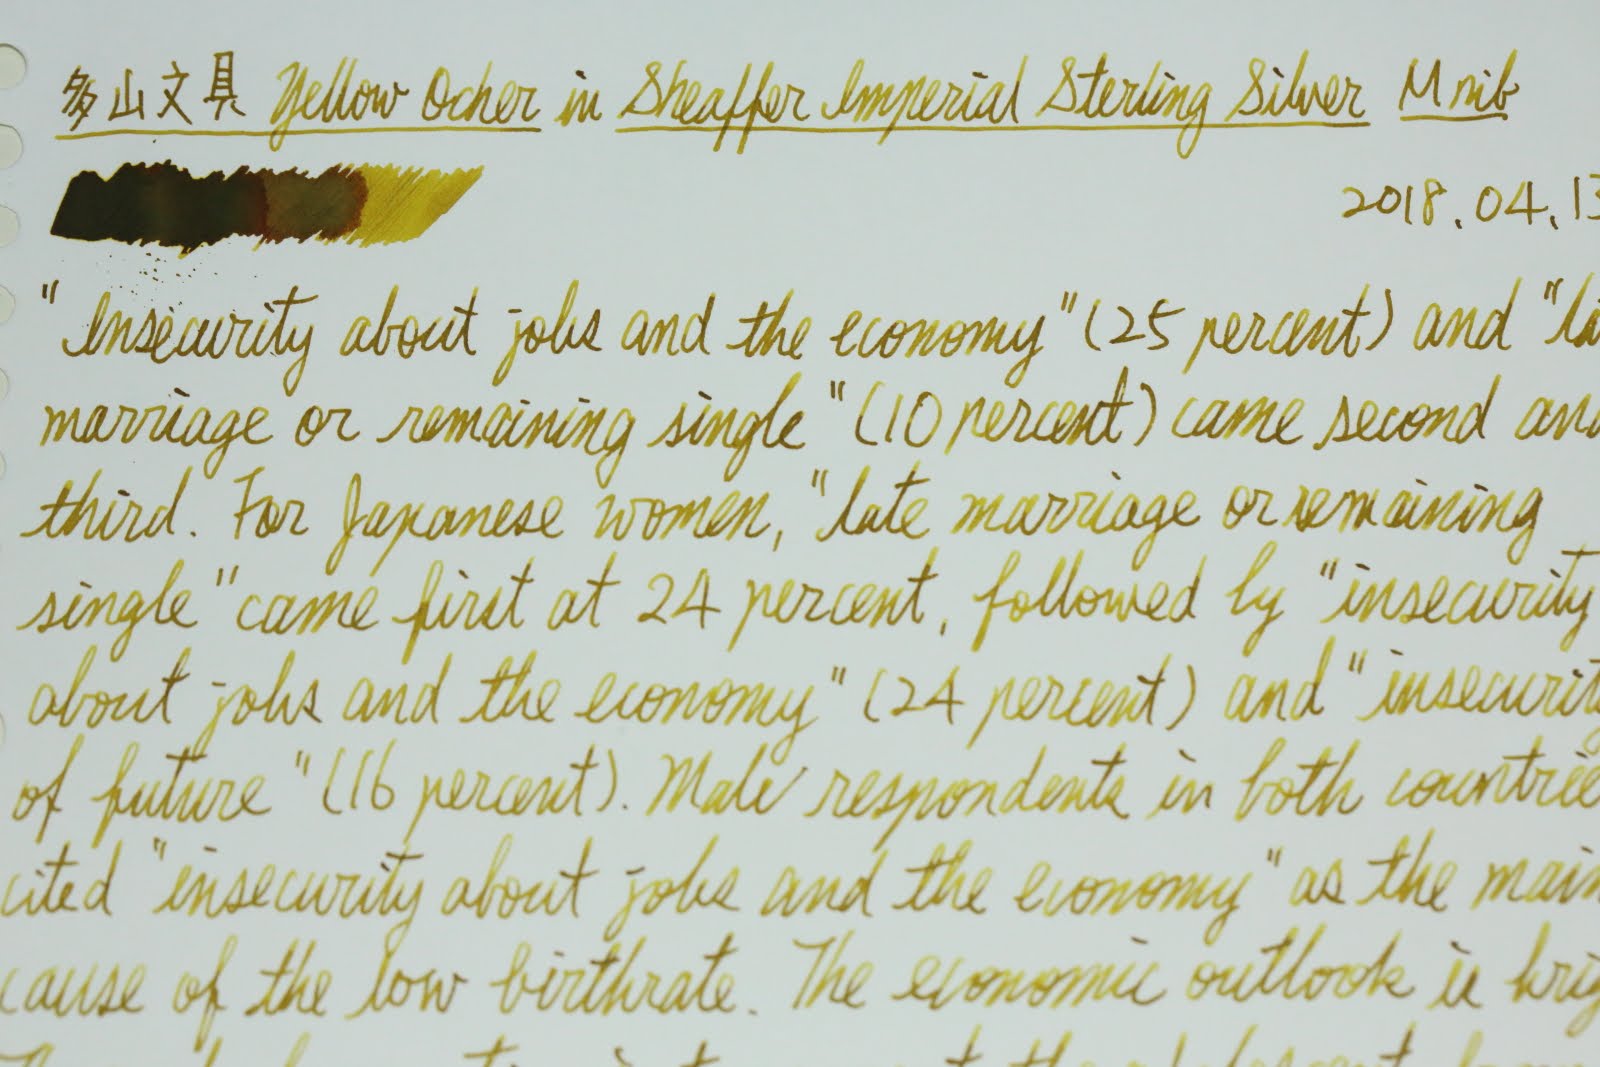 多山文具 Yellow Ocher in Sheaffer Imperial Sterling Silver M nib
2018.04.13
"Insecurity about jobs and the economy" (25 percent) and "la
marriage or remaining single" (10 percent) came second and
third. For Japanese women, "late marriage or remaining
single" came first at 24 percent, followed by "insecurity
about jobs and the economy" (24 percent) and "insecurity
of future" (16 percent). Male respondents in both countrie
cited "insecurity about jobs and the economy" as the main
cause of the low birthrate. The economic outlook is brig